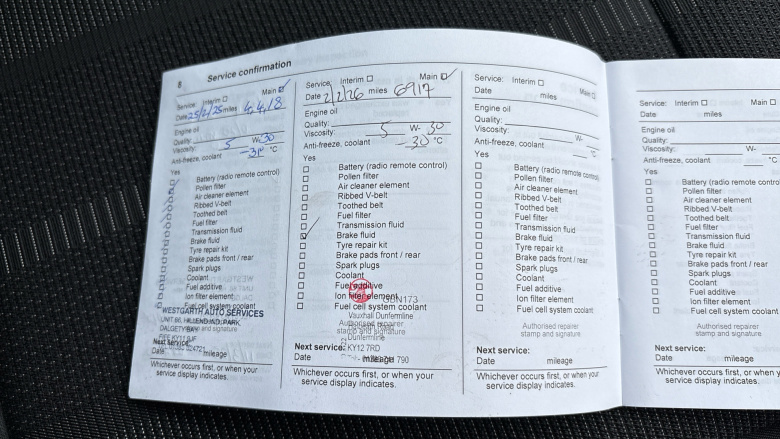 8 Service confirmation
Service: Interim □ Main □
Date 25/2/25 miles 4,418
Engine oil
Quality:
Viscosity: 5 W- 30
Anti-freeze, coolant -31 °C
Yes
□ Battery (radio remote control)
□ Pollen filter
□ Air cleaner element
□ Ribbed V-belt
□ Toothed belt
□ Fuel filter
□ Transmission fluid
□ Brake fluid
□ Tyre repair kit
□ Brake pads front / rear
□ Spark plugs
□ Coolant
□ Fuel additive
□ Ion filter element
□ Fuel cell system coolant
WESTGARTH AUTO SERVICES
UNIT 6B, HILLEND IND. PARK
DALGETY BAY
stamp and signature
FIFE KY11 9JF
Next service:
Date mileage
Whichever occurs first, or when your
service display indicates.
Service: Interim □ Main □
Date 2/2/26 miles 6917
Engine oil
Quality:
Viscosity: 5 W- 30
Anti-freeze, coolant -30 °C
Yes
□ Battery (radio remote control)
□ Pollen filter
□ Air cleaner element
□ Ribbed V-belt
□ Toothed belt
□ Fuel filter
□ Transmission fluid
□ Brake fluid
□ Tyre repair kit
□ Brake pads front / rear
□ Spark plugs
□ Coolant
□ Fuel additive
□ Ion filter element
□ Fuel cell system coolant
Vauxhall Dunfermline
Authorised repairer
stamp and signature
Dunfermline
Next service: KY12 7RD
Date mileage 790
Whichever occurs first, or when your
service display indicates.
Service: Interim □ Main □
Date miles
Engine oil
Quality:
Viscosity: W-
Anti-freeze, coolant °C
Yes
□ Battery (radio remote control)
□ Pollen filter
□ Air cleaner element
□ Ribbed V-belt
□ Toothed belt
□ Fuel filter
□ Transmission fluid
□ Brake fluid
□ Tyre repair kit
□ Brake pads front / rear
□ Spark plugs
□ Coolant
□ Fuel additive
□ Ion filter element
□ Fuel cell system coolant
Authorised repairer
stamp and signature
Next service:
Date mileage
Whichever occurs first, or when your
service display indicates.
Service: Interim □ Main □
Date miles
Engine oil
Quality:
Viscosity: W-
Anti-freeze, coolant °C
Yes
□ Battery (radio remote
□ Pollen filter
□ Air cleaner element
□ Ribbed V-belt
□ Toothed belt
□ Fuel filter
□ Transmission fluid
□ Brake fluid
□ Tyre repair kit
□ Brake pads front / rear
□ Spark plugs
□ Coolant
□ Fuel additive
□ Ion filter element
□ Fuel cell system coolant
Authorised repairer
stamp and signature
Next service:
Date mileage
Whichever occurs first, or when
service display indicates.